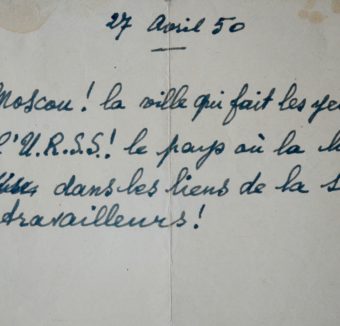 27 Avril 50
Moscou! la ville qui fait les
l'U.R.S.S.! le pays où la
dans les liens de la
travailleurs!